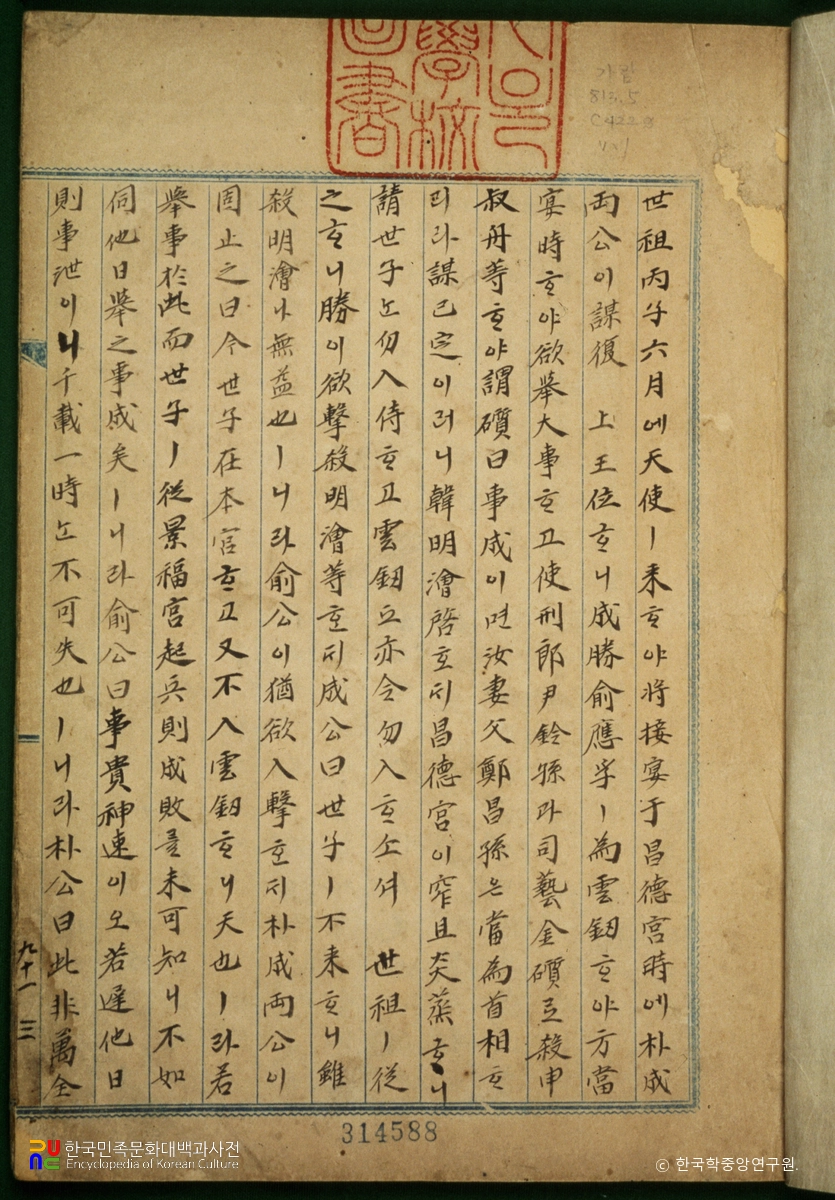 世祖丙子六月에天使ㅣ来ᄒᆞ야将接宴于昌德宮時에朴成
両公이謀復 上王位ᄒᆞ니成勝俞應孚ㅣ為雲釰ᄒᆞ야方當
宴時ᄒᆞ야欲舉大事ᄒᆞ고使刑郎尹鈴孫과司藝金礩로殺申
叔舟等ᄒᆞ야謂礩曰事成이면汝妻父鄭昌孫은當為首相ᄒᆞ
리라謀已定이러니韓明澮啓호ᄃᆡ昌德宮이窄且炎蒸ᄒᆞ니
請世子도勿入侍ᄒᆞ고雲釰도亦令勿入ᄒᆞ소셔 世祖ㅣ從
之ᄒᆞ니勝이欲擊殺明澮等호ᄃᆡ成公曰世子ㅣ不来ᄒᆞ니雖
殺明澮나無益也ㅣ니라俞公이猶欲入擊호ᄃᆡ朴成両公이
固止之曰今世子在本宮ᄒᆞ고又不入雲釰ᄒᆞ니天也ㅣ라若
舉事於此而世子ㅣ從景福宮起兵則成敗를未可知니不如
伺他日舉之事成矣ㅣ니라俞公曰事貴神速이오若遅他日
則事泄이니千載一時도不可失也ㅣ니라朴公曰此非萬全
九十一 三
學校
圖書
가람
813.5
314588
한국민족문화대백과사전
Encyclopedia of Korean Culture
ⓒ 한국학중앙연구원.